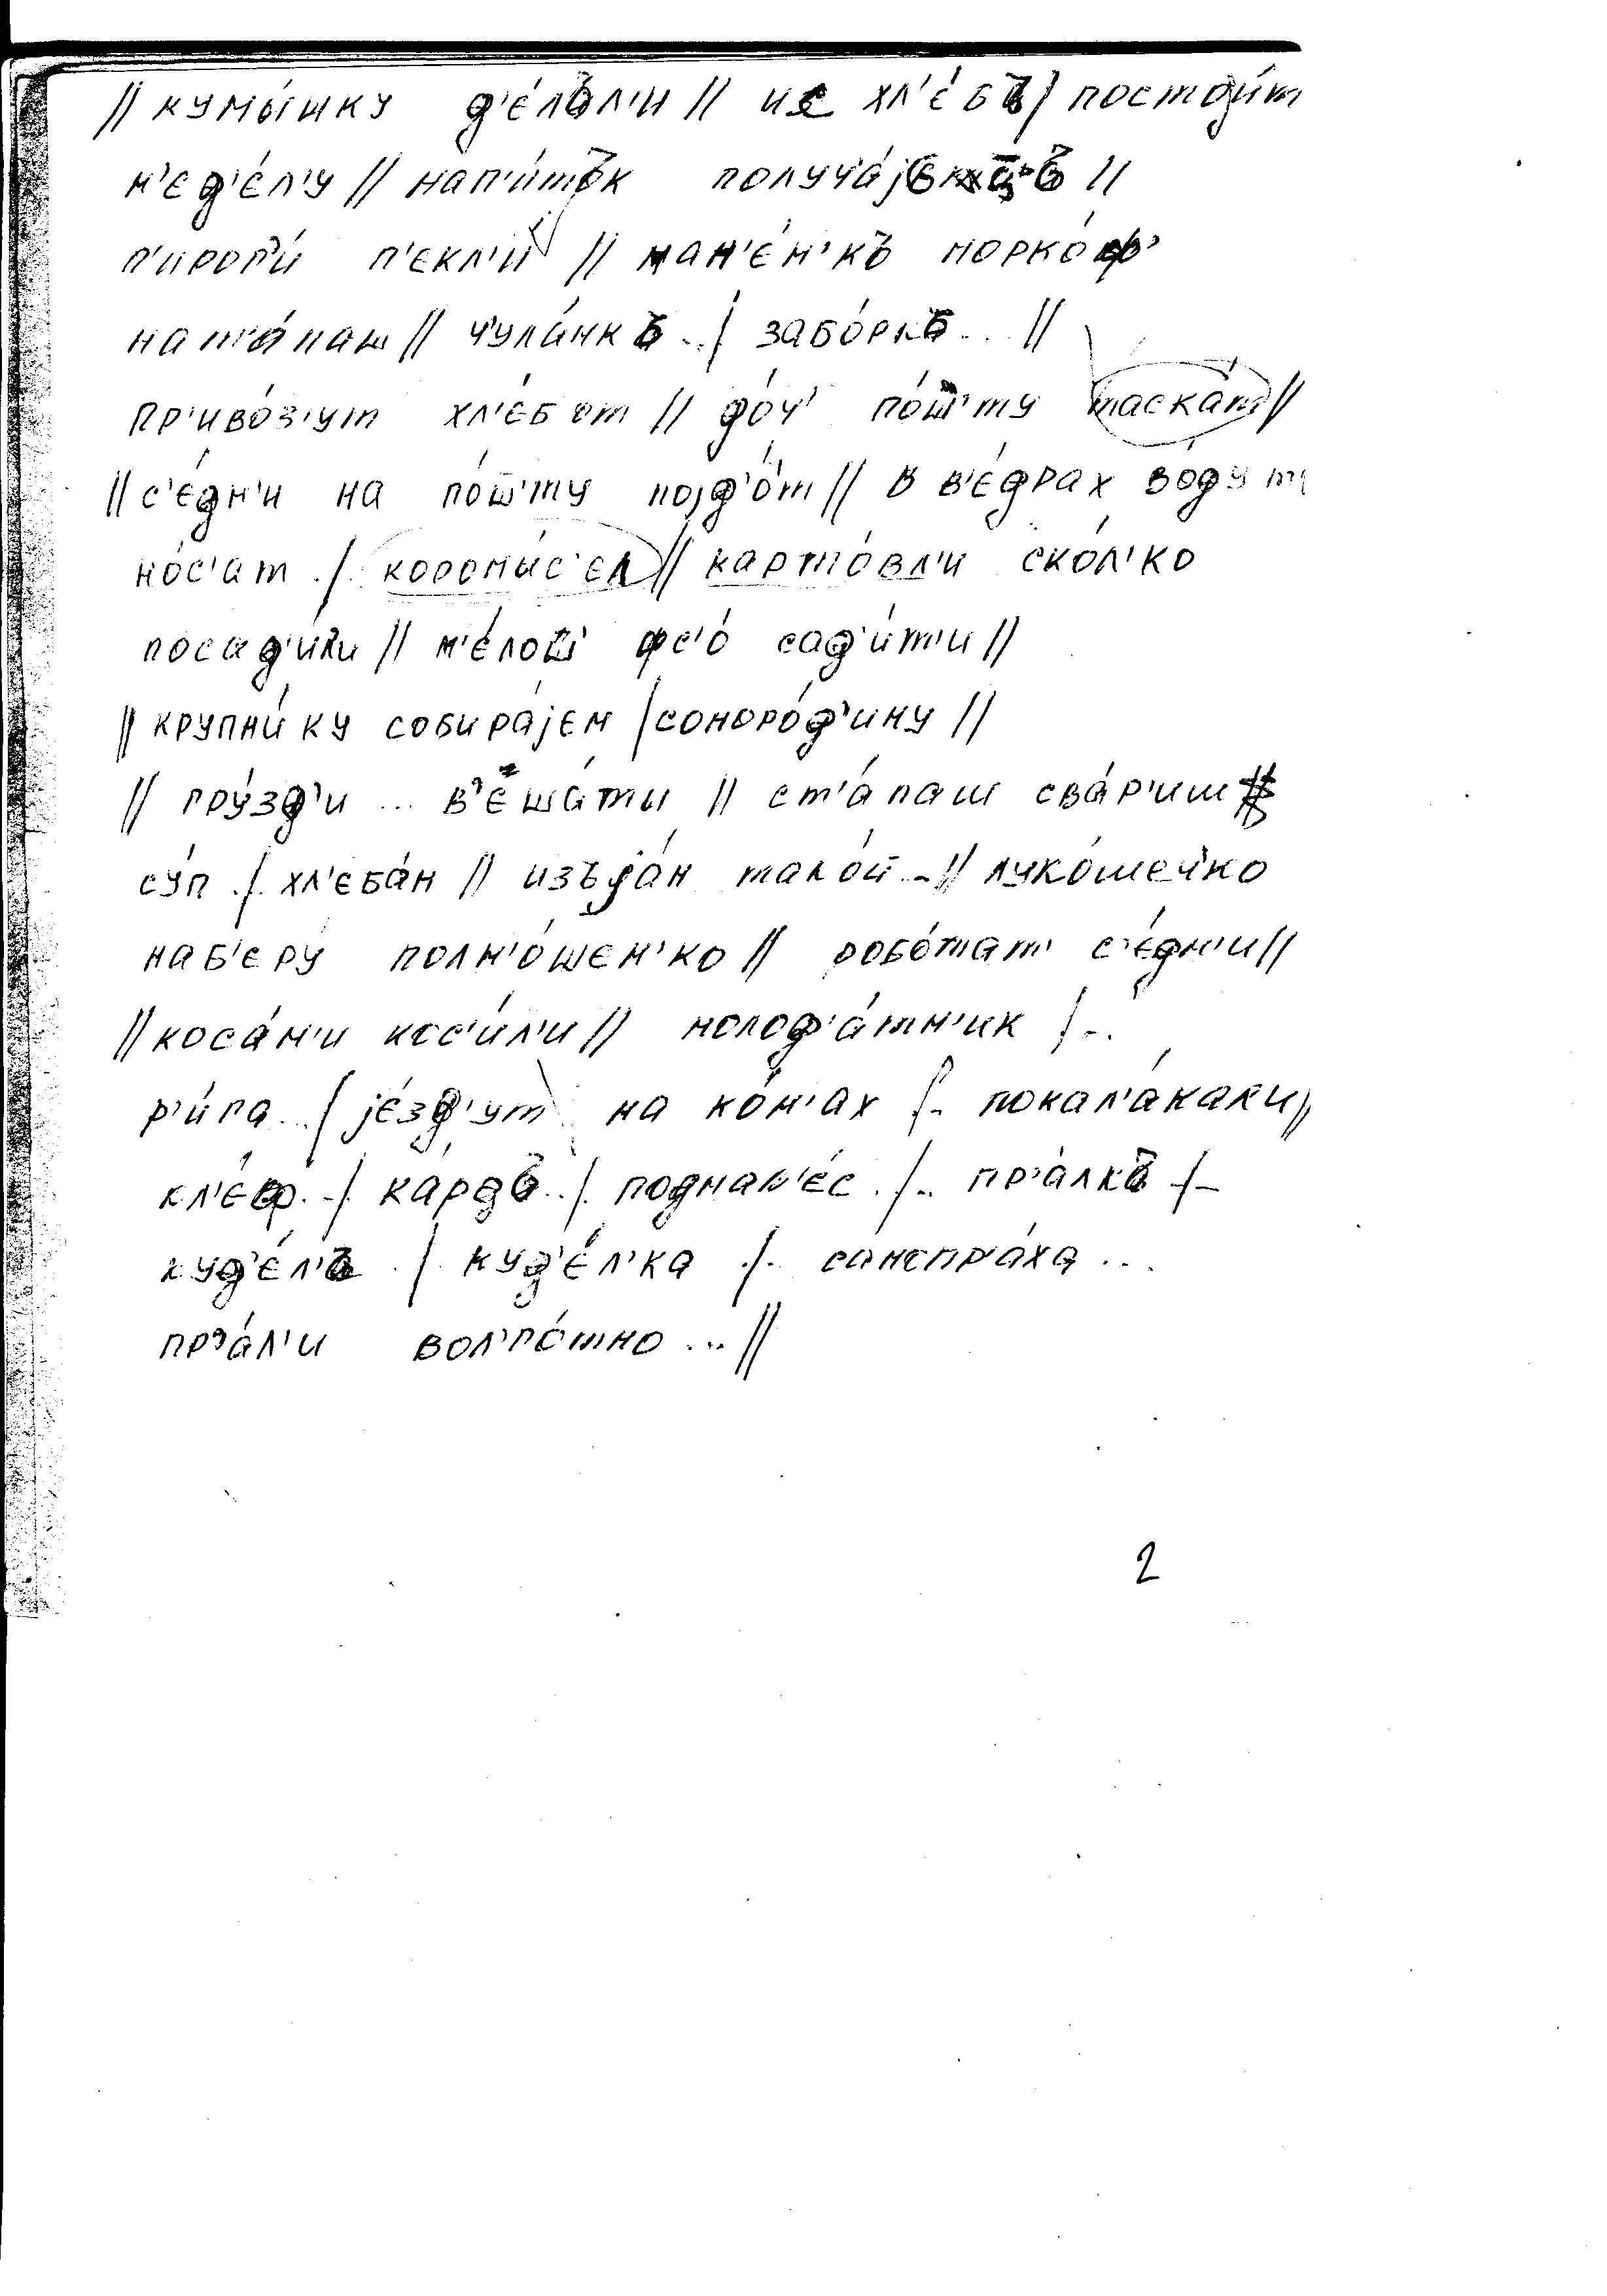 // кумы́шку д'е́лъл'и // ис хл'е́бъ / постоjи́т
н'ед'е́л'у // нап'и́тък получ'а́jеццъ //
п'ирог'и́ п'екл'и́ // ман'е́н'къ морко́ф'
нат'а́паш // ч'ула́нкъ .. / забо́ркъ ... //
пр'иво́з'ут хл'е́б от // до́ч' по́ш'ту таска́т //
// с'е́дн'и на по́ш'ту поjд'о́т // в в'е́драх во́ду
но́с'ат . / . коромы́с'ел // карто́вл'и ско́л'ко
посад'и́ли // м'е́лош' фс'о́ сад'и́т'и //
// крупн'и́ку собира́jем / сморо́д'ину //
// гру́зд'и ... в'еша́ты // ст'а́паш сва́р'иш
су́п . / . хл'еба́н // изъjа́н тако́й .. // луко́шечко
наб'еру́ полн'о́шен'ко // робо́тат' с'е́дн'и //
// коса́м'и кос'и́л'и // молод'а́тн'ик / ..
р'и́га ... / jе́зд'ут на ко́н'ах / .. покал'а́кали //
кл'е́ф .. / ка́рдъ .. / поднав'е́с . / .. пр'а́лкъ . / ..
куд'е́л'ъ . / куд'е́л'ка . / . самопр'а́ха ...
пр'а́л'и вол'го́тно ... //
2